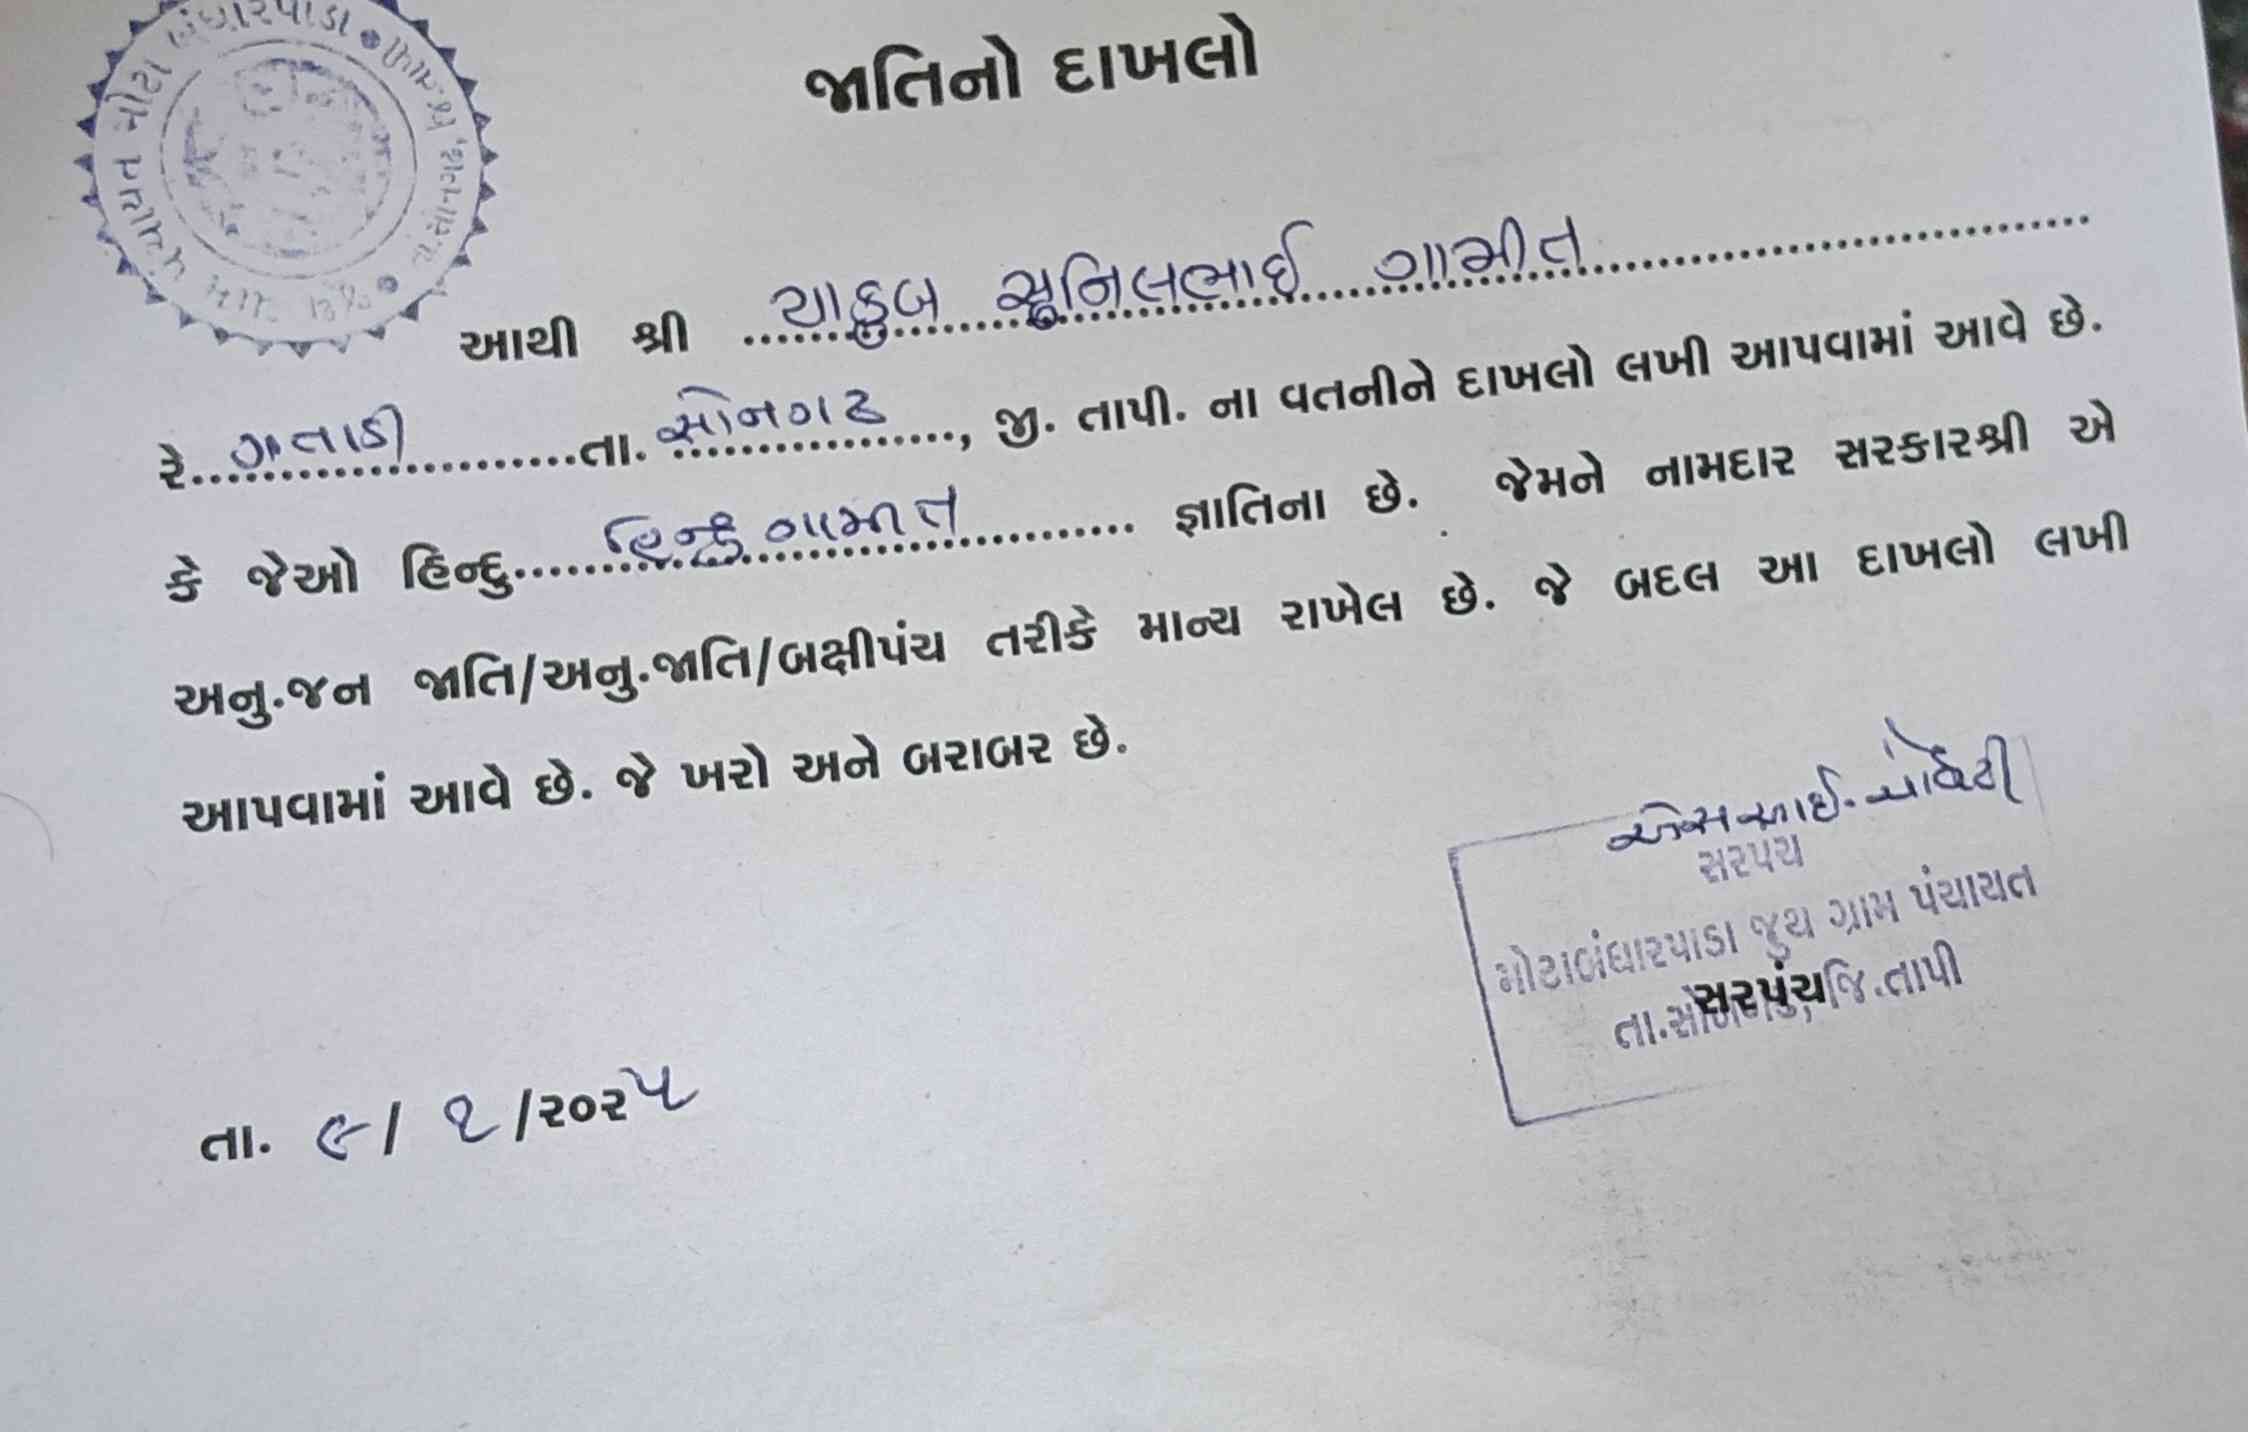 ગ્રામ પંચાયત મોટા બંધારપાડા
જાતિનો દાખલો
આથી શ્રી યાકુબ સુનિલભાઈ ગામીત
રે. ગતાડી તા. સોનગઢ, જી. તાપી. ના વતનીને દાખલો લખી આપવામાં આવે છે.
કે જેઓ હિન્દુ હિન્દુ ગામીત જ્ઞાતિના છે. જેમને નામદાર સરકારશ્રી એ
અનુ.જન જાતિ/અનુ.જાતિ/બક્ષીપંચ તરીકે માન્ય રાખેલ છે. જે બદલ આ દાખલો લખી
આપવામાં આવે છે. જે ખરો અને બરાબર છે.
એસ.આઈ.
સરપંચ
મોટાબંધારપાડા જુથ ગ્રામ પંચાયત
તા.સોનગઢ, જિ.તાપી
સરપંચ
તા. ૯/ ૧ /૨૦૨૫